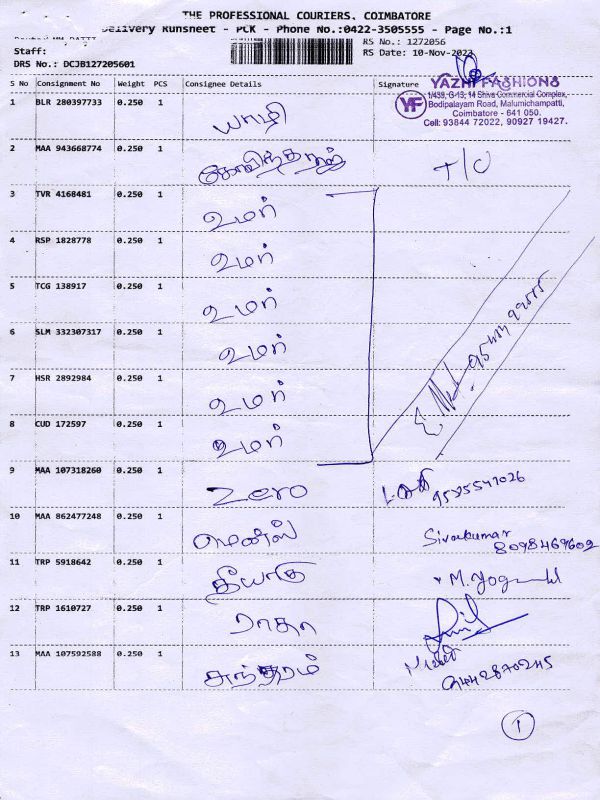 THE PROFESSIONAL COURIERS, COIMBATORE
Delivery Runsheet - PCK - Phone No.:0422-3505555 - Page No.:1
RS No.: 1272056
Staff:
RS Date: 10-Nov-2023
DRS No.: DCJB127205601
S No Consignment No Weight PCS Consignee Details Signature
YAZHI FASHIONS
1/439, G-13, 14 Shiva Commercial Complex,
YF Bodipalayam Road, Malumichampatti,
Coimbatore - 641 050.
Cell: 93844 72022, 90927 19427.
1 BLR 280397733 0.250 1 யாழி
2 MAA 943668774 0.250 1 கோவிந்தராஜ் T/C
3 TVR 4168481 0.250 1 உமர்
4 RSP 1828778 0.250 1 உமர்
5 TCG 138917 0.250 1 உமர்
6 SLM 332307317 0.250 1 உமர்
7 HSR 2892984 0.250 1 உமர்
8 CUD 172597 0.250 1 உமர்
9 MAA 107318260 0.250 1 Zero
10 MAA 862477248 0.250 1 மென்ஸ் Sivakumar
8098469602
11 TRP 5918642 0.250 1 தியாகு M. Yog
12 TRP 1610727 0.250 1 ராதா
13 MAA 107592588 0.250 1 சுந்தரம்
9442870245
1